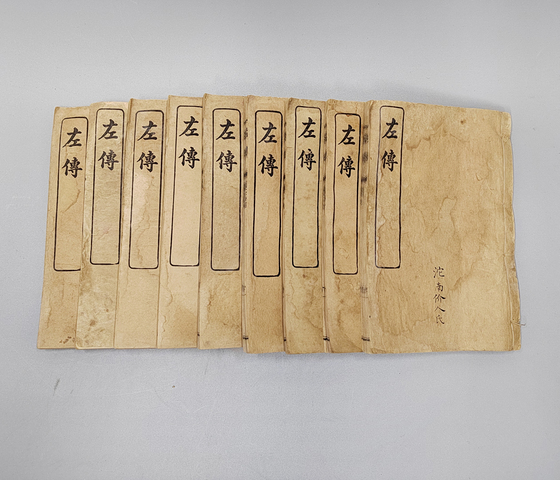 左傳
左傳
左傳
左傳
左傳
左傳
左傳
左傳
左傳
沱南价人氏